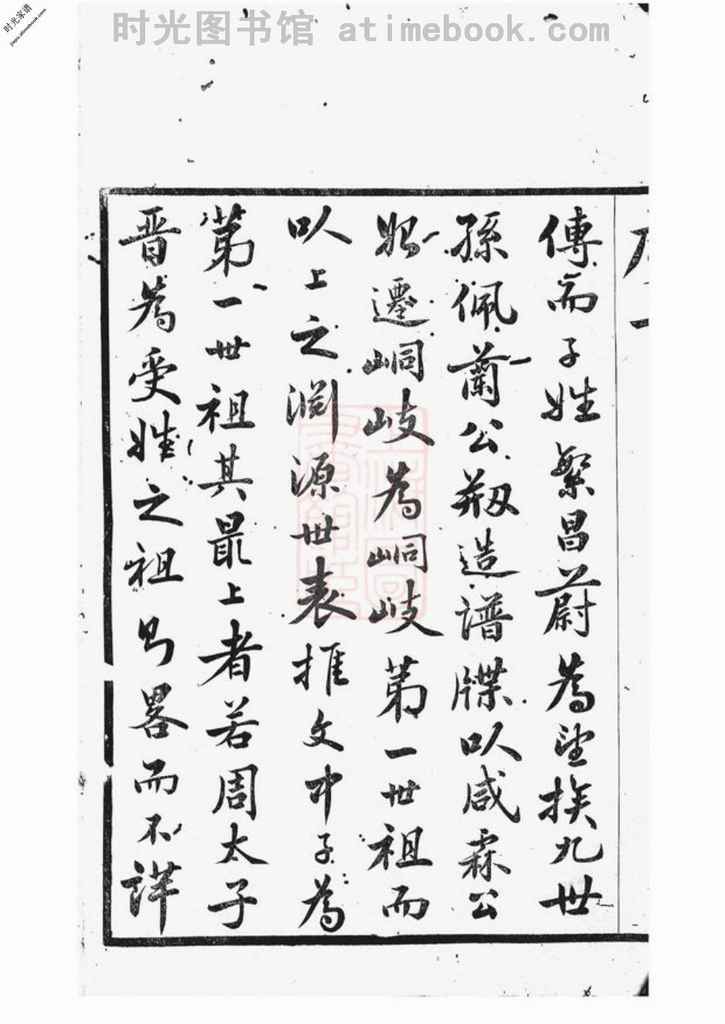 时光图书馆 atimebook.com
时光家谱
傳而子姓繁昌蔚為望族九世
孫佩蘭公剏造譜牒以咸霖公
始遷峒岐為峒岐第一世祖而
以上之淵源世表推文中子為
第一世祖其最上者若周太子
晉為受姓之祖乃畧而不詳